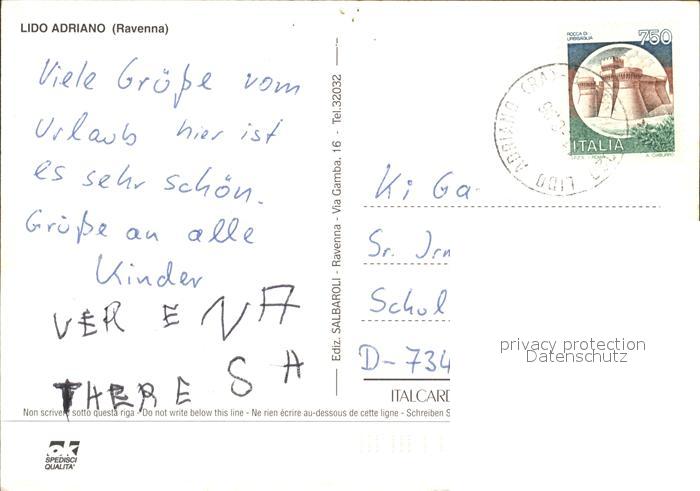 LIDO ADRIANO (Ravenna)
Viele Grüße vom
Urlaub hier ist
es sehr schön.
Grüße an alle
Kinder
VERENA
THERESA
Ediz. SALBAROLI - Ravenna - Via Gamba, 16 - Tel.32032
ROCCA DI
URBISAGLIA
750
ITALIA
LIDO ADRIANO (RA)
Ki Ga
Sr. Irm
Schol
D-734
privacy protection
Datenschutz
ITALCARD
Non scrivere sotto questa riga - Do not write below this line - Ne rien écrire au-dessous de cette ligne - Schreiben S
SPEDISCI
QUALITA'